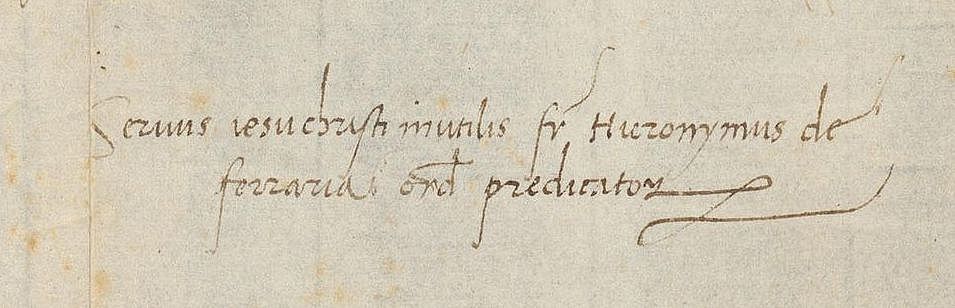 Seruus iesu christi inutilis fr Hieronymus de
ferraria ord predicatoꝝ